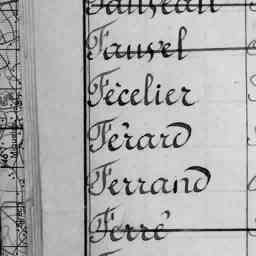 Fauvel
Fécelier
Férard
Ferrand
Ferré